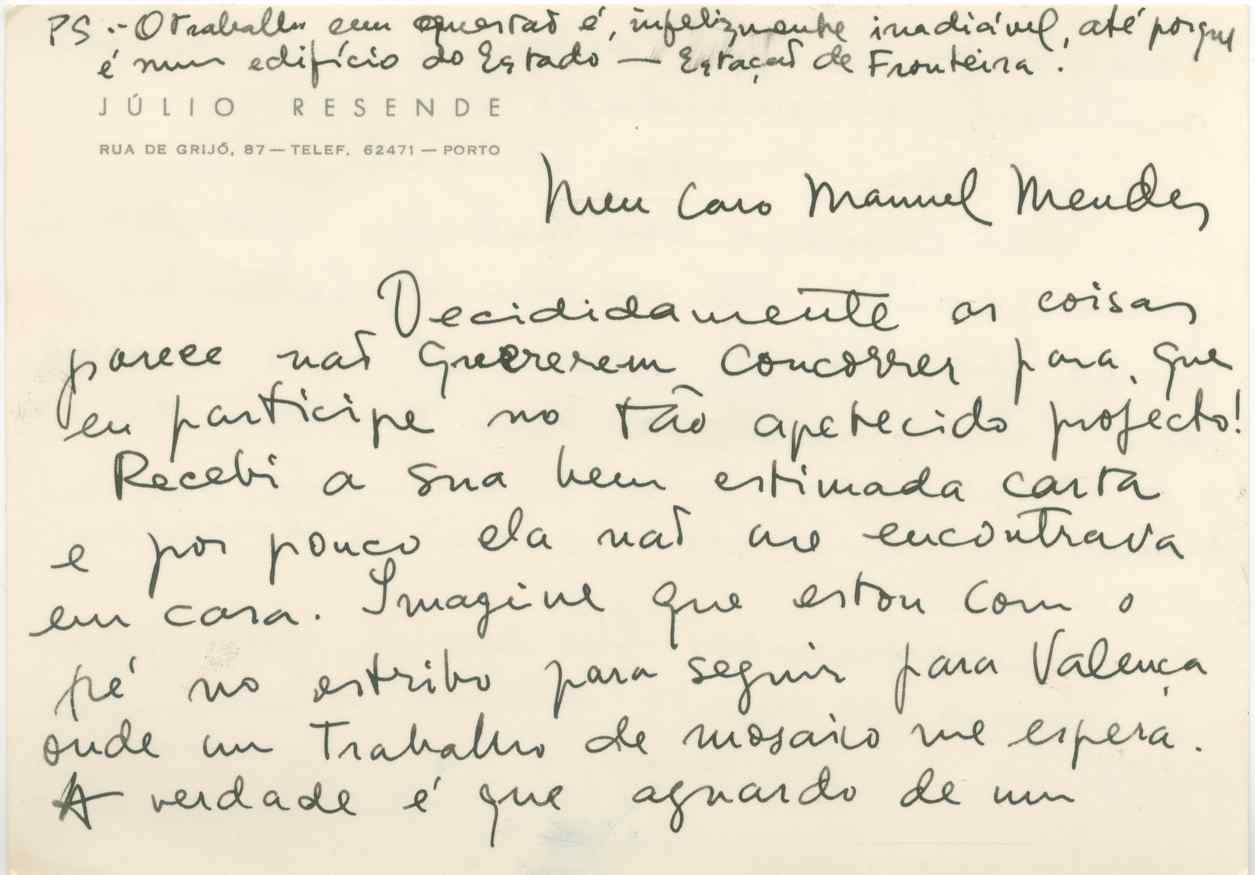 PS.- O trabalho em questão é, infelizmente inadiável, até porque
é num edifício do Estado — Estação de Fronteira.
JÚLIO RESENDE
RUA DE GRIJÓ, 87 — TELEF. 62471 — PORTO
Meu caro Manuel Mendes
Decididamente as coisas
parece não quererem concorrer para que
eu participe no tão apetecido projecto!
Recebi a sua bem estimada carta
e por pouco ela não me encontrava
em casa. Imagine que estou com o
pé no estribo para seguir para Valença
onde um trabalho de mosaico me espera.
A verdade é que aguardo de um